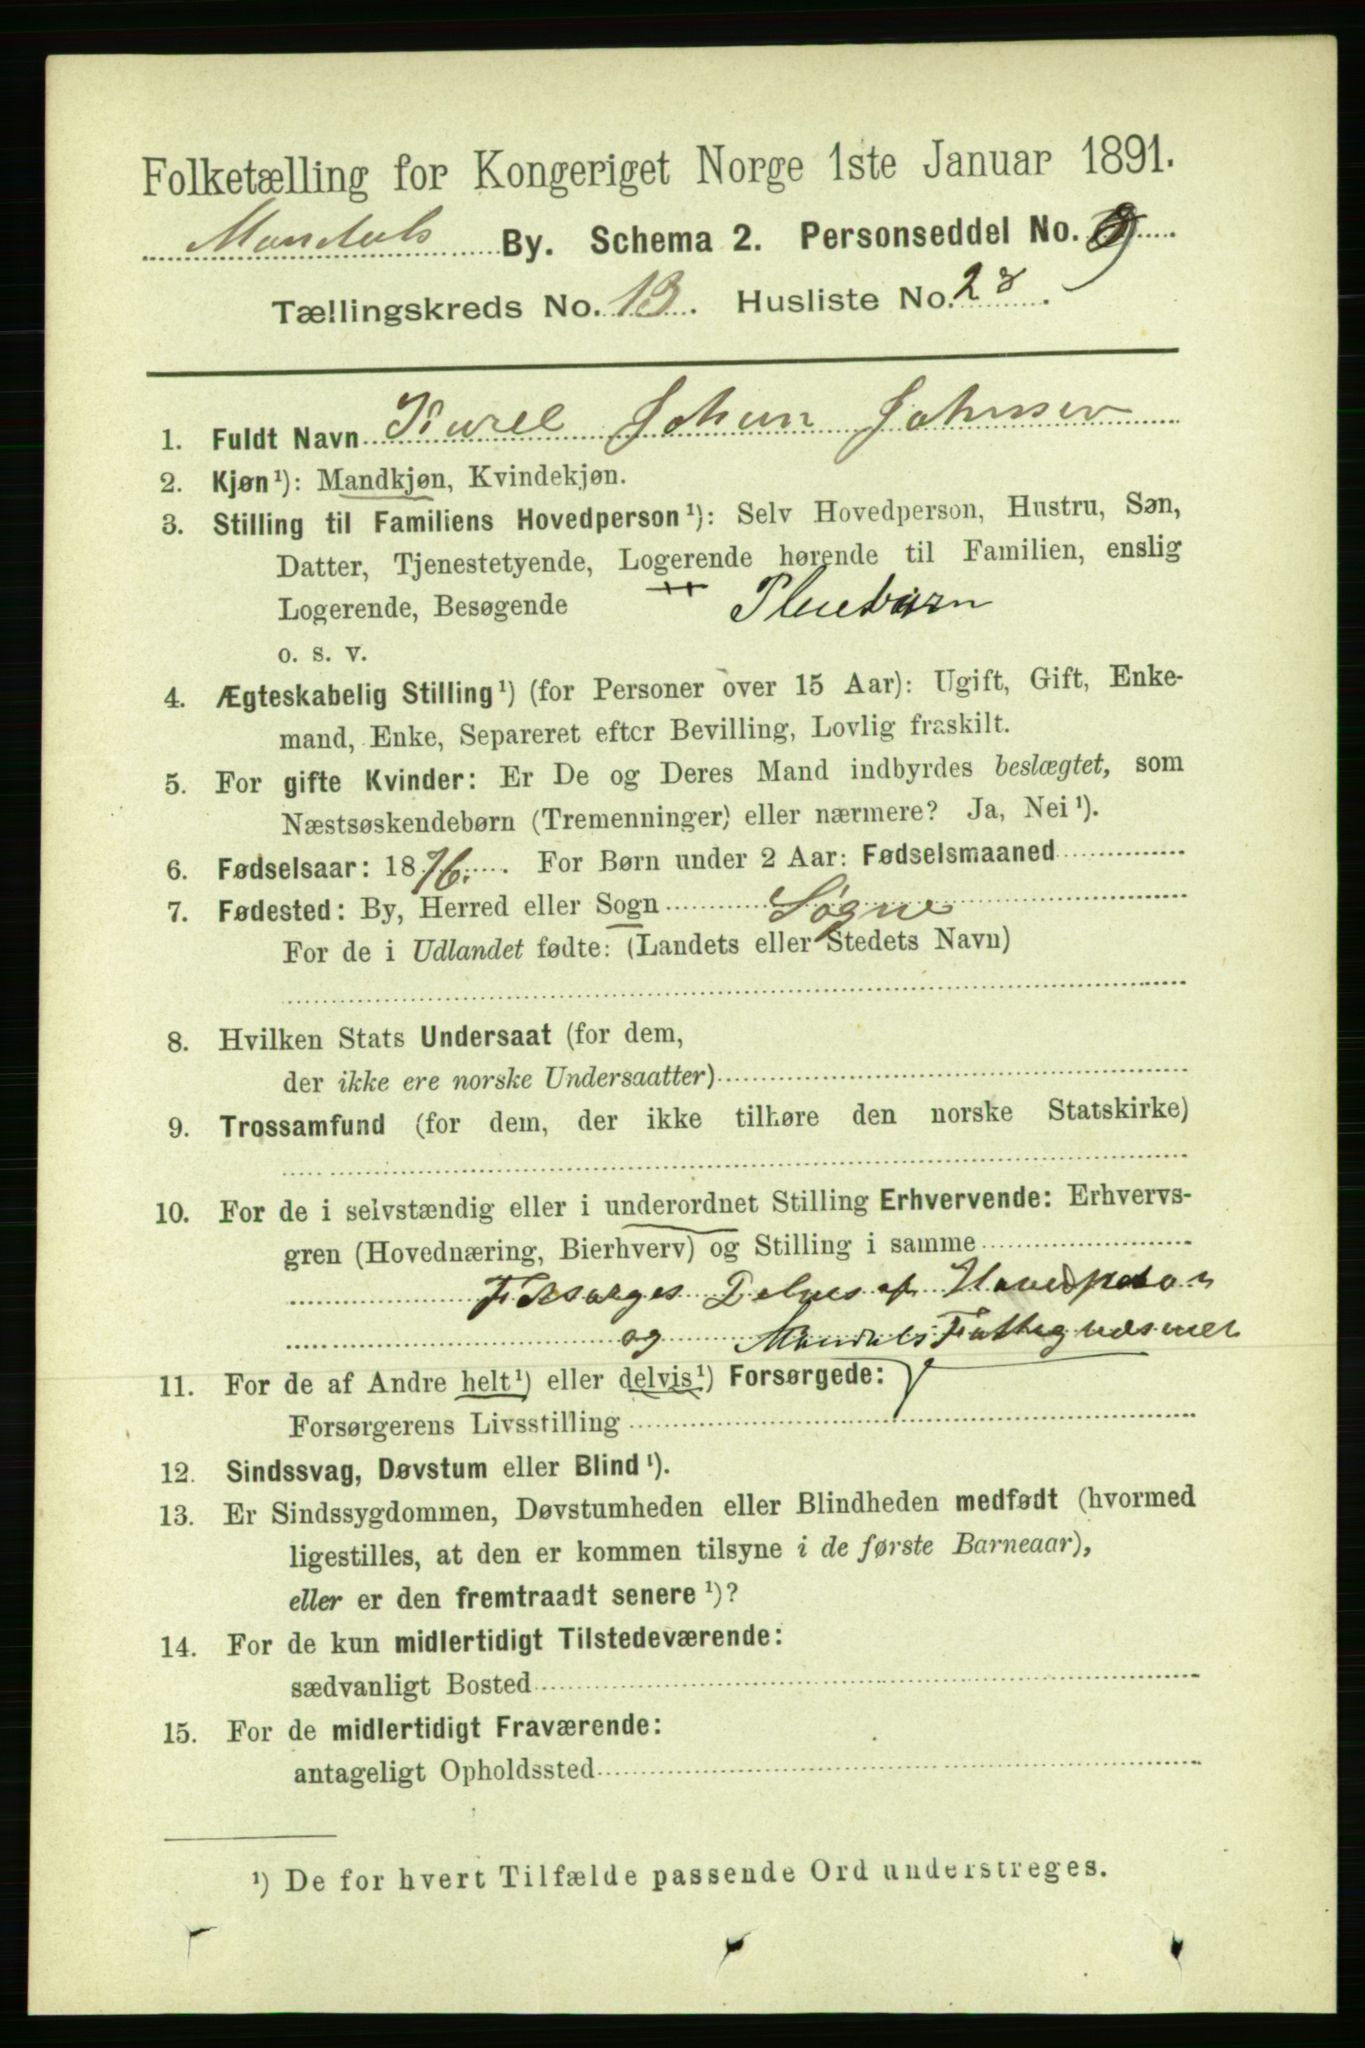 Folketælling for Kongeriget Norge 1ste Januar 1891.
Mandals By. Schema 2. Personseddel No. 9
Tællingskreds No. 13. Husliste No. 28.
1. Fuldt Navn Karel Johan Johnsen
2. Kjøn¹): Mandkjøn, Kvindekjøn.
3. Stilling til Familiens Hovedperson¹): Selv Hovedperson, Hustru, Søn,
Datter, Tjenestetyende, Logerende hørende til Familien, enslig
Logerende, Besøgende Pleiebarn
o. s. v.
4. Ægteskabelig Stilling¹) (for Personer over 15 Aar): Ugift, Gift, Enke-
mand, Enke, Separeret efter Bevilling, Lovlig fraskilt.
5. For gifte Kvinder: Er De og Deres Mand indbyrdes beslægtet, som
Næstsøskendebørn (Tremenninger) eller nærmere? Ja, Nei¹).
6. Fødselsaar: 1876. For Børn under 2 Aar: Fødselsmaaned
7. Fødested: By, Herred eller Sogn Søgne
For de i Udlandet fødte: (Landets eller Stedets Navn)
8. Hvilken Stats Undersaat (for dem,
der ikke ere norske Undersaatter)
9. Trossamfund (for dem, der ikke tilhøre den norske Statskirke)
10. For de i selvstændig eller i underordnet Stilling Erhvervende: Erhvervs-
gren (Hovednæring, Bierhverv) og Stilling i samme
Forsørges Delvis af Hovedperson
og Mandals Fattigvæsnet
11. For de af Andre helt¹) eller delvis¹) Forsørgede:
Forsørgerens Livsstilling
12. Sindssvag, Døvstum eller Blind¹).
13. Er Sindssygdommen, Døvstumheden eller Blindheden medfødt (hvormed
ligestilles, at den er kommen tilsyne i de første Barneaar),
eller er den fremtraadt senere¹)?
14. For de kun midlertidigt Tilstedeværende:
sædvanligt Bosted
15. For de midlertidigt Fraværende:
antageligt Opholdssted
¹) De for hvert Tilfælde passende Ord understreges.